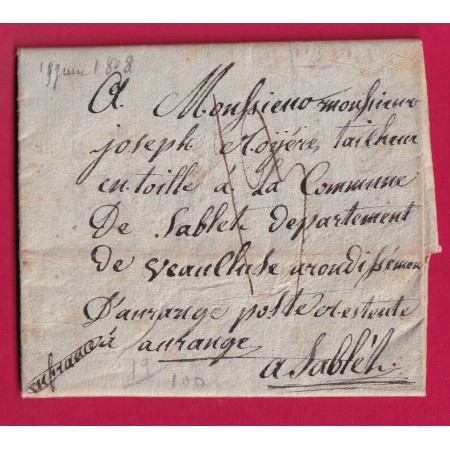 19 juin 1808
A Monsieur monsieur
joseph Royére, tailheur
en toille á La Commune
De Sablet departement
de veaucluse arondissémen
D'aurange poste restente
aurange
a Sablét.
en france
19
100